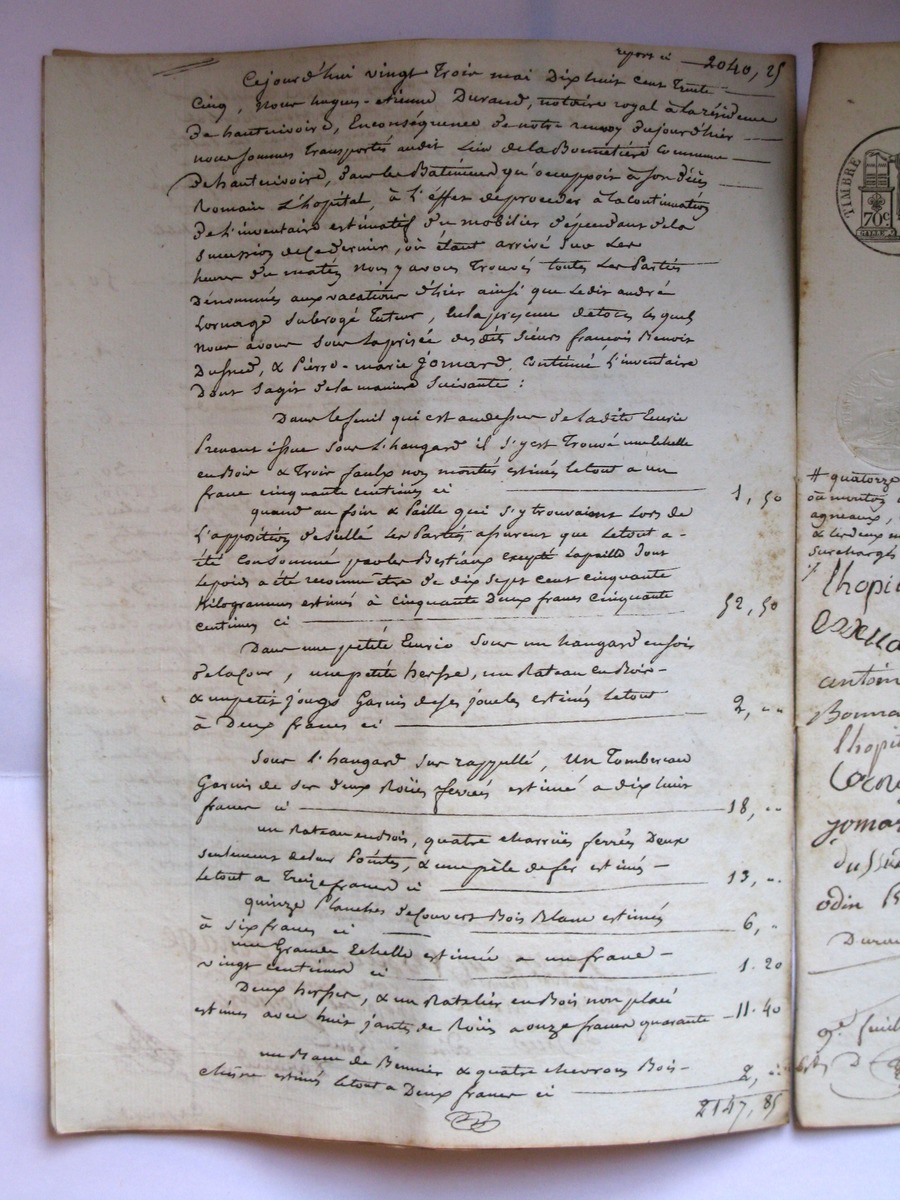 report ci 2040, 25
Cejourd'hui vingt Trois mai Dix huit cent Trente
Cinq, Nous hugues-etienne Durand, notaire royal à la résidence
De hauterivoire, En conséquence de notre renvoy du jour d'hier
nous sommes Transportés audit Lieu de la Bonnetière Commune
De hauterivoire, dans les Batiments qu'occuppoit à son décès
Romain L'hopital, à l'effet de proceder à la continuation
de l'inventaire estimatif du mobilier dépendant de la
succession de ce dernier, où étant arrivé sur Les
heures du matin Nous y avons Trouvés toutes Les Parties
Dénommés aux vacations d'hier ainsi que ledit andré
Lornage subrogé Tuteur, En la presence de tous lesquels
Nous avons sous la prisée des dits sieurs francois Benoit
& Pierre-marie jomard, Continué L'inventaire
Dont s'agit de la maniere suivante :
Dans le fenil qui est au dessus de la dite Ecurie
Prenant issue sous L'hangard il s'y est Trouvé une Echelle
en Bois & Trois faulx non montés estimés le tout a un
franc cinquante centimes ci 1, 50
quand au foin & Paille qui s'y trouvaient Lors de
L'apposition de scellé Les Parties assurent que le tout a
été Consommé par les Bestiaux excepté la paille dont
le poids a été reconnu être de dix sept cent cinquante
Kilogrammes estimés à cinquante Deux francs cinquante
centimes ci 52, 50
Dans une petite Ecurie sous un hangard en soir
de la cour, une petite herse, un Rateau en Bois
& un petit jougs Garnis de ses joucles estimés le tout
à Deux francs ci 2, "
Sous l'hangard sus rappellé, un Tombereau
Garnis de ses deux Roües ferrées estimé a dix huit
francs ci 18, "
un Rateau en Bois, quatre charrües ferrés Deux
seulement de leur Pointes, & une pèle de fer estimés
le tout a Treize francs ci 13, "
quinze Planches de Couvert Bois Blanc estimés
à six francs ci 6, "
une Grande Echelle estimée a un franc
vingt centimes ci 1. 20
Deux herses, & un Ratelier en Bois non placé
estimés avec huit jantes de Roües a onze francs quarante 11. 40
un de & quatre chevrons Bois
chesne estimés le tout a Deux francs ci 2, "
2147, 85
TIMBRE
70 c
# quatorze
agneaux,
& les deux
surchargés
lhopi
antoin
Bonna
lhopi
jomar
odin
Dura
9e feuil